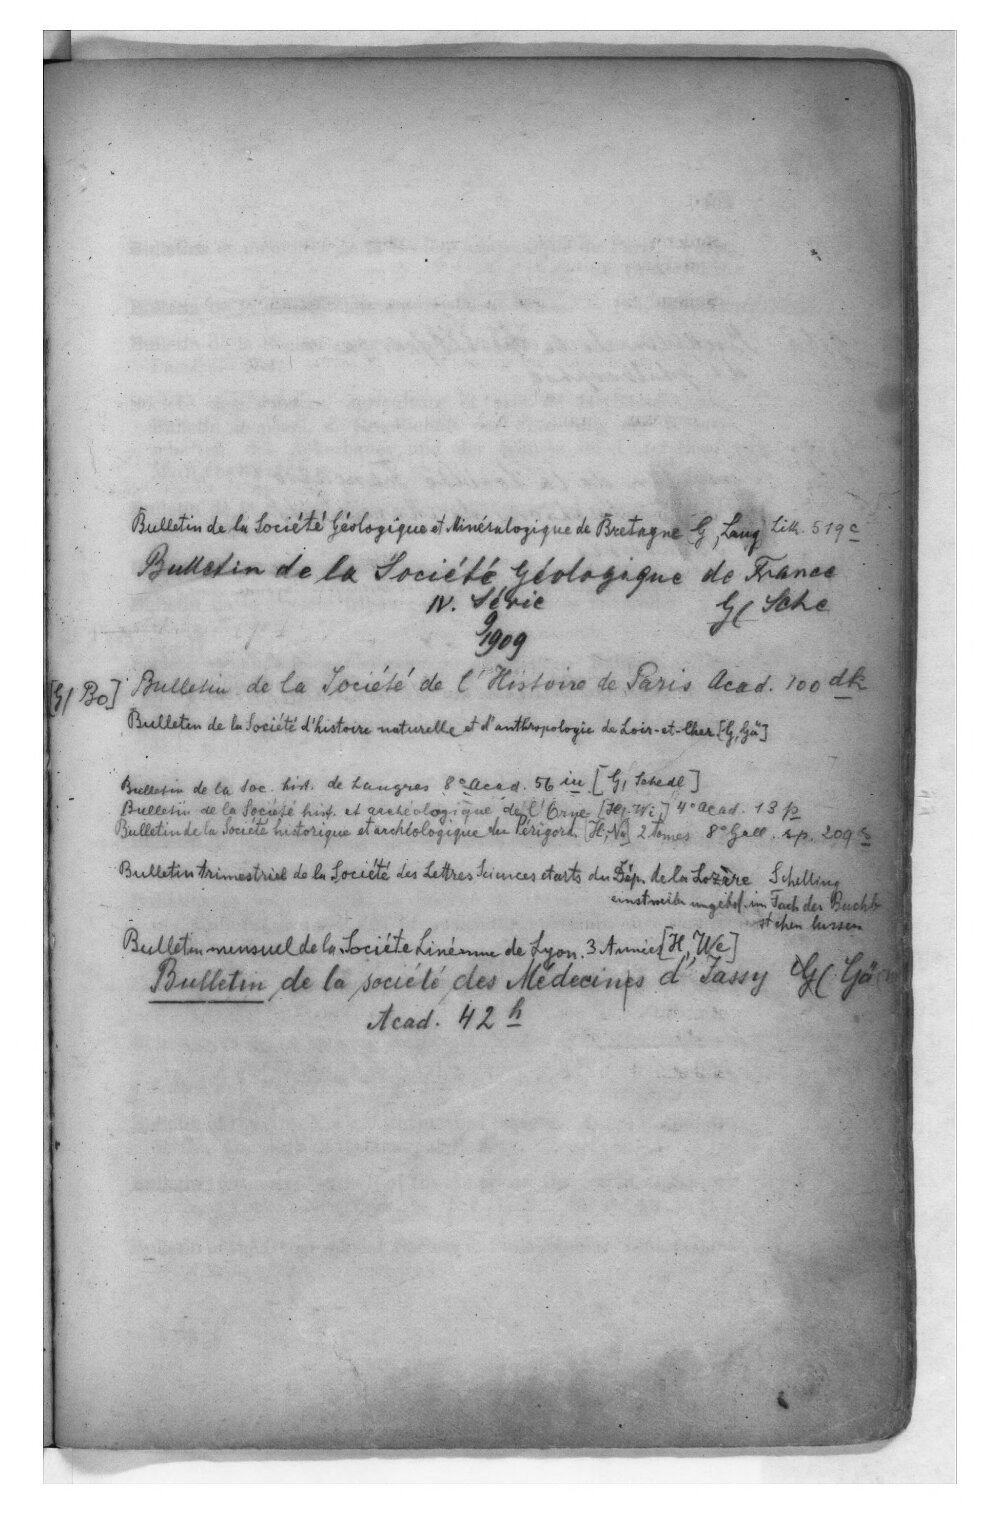 Bulletin de la Société Géologique et Minéralogique de Bretagne [G, Lang Litt. 519 c
Bulletin de la Société Géologique de France
IV. Série G( Sche
9
1909
[G( Bo] Bulletin de la Société de l'Histoire de Paris Acad. 100 dk
Bulletin de la Société d'histoire naturelle et d'anthropologie de Loir-et-Cher [G, Gä]
Bulletin de la Soc. hist. de Langres 8° Acad. 56 iu [G, Schedl]
Bulletin de la Société hist. et archéologique de l'Orne [H, Wi,] 4° Acad. 13 p
Bulletin de la Société historique et archéologique du Périgord. [H, Na] 2 tomes 8° Gall. sp. 209
Bulletin trimestriel de la Société des Lettres Sciences et arts du Dép. de la Lozère Schelling
einstweilen im Fach der Buchb
stehen lassen
Bulletin mensuel de la Société Linéenne de Lyon. 3 Année [H, We]
Bulletin de la société des Médecins d' Jassy G( Gä
Acad. 42 h